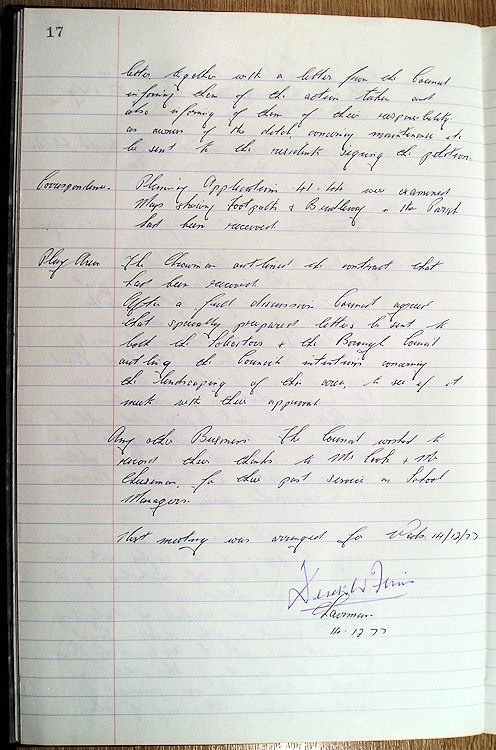 17
letter together with a letter from the Council
informing them of the action taken and
also informing of them of their responsibility
as owners of the ditch, concerning maintenance etc
be sent to the residents signing the petition.
Correspondence. Planning Applications 41.44 were examined
Maps showing Footpaths & Bridleway in the Parish
had been received
Play Area The Chairman outlined the contract that
had been received
After a full discussion Council agreed
that specially prepared letters be sent to
both the Solicitors & the Borough Council
outling the Councils intentions concerning
the landscaping of this area, to see if it
meets with their approval
Any other Business The Council wished to
record their thanks to Mr Cook & Mr
Cheseman, for their past service as School
Managers.
Next meeting was arranged for Weds. 14/12/77
Chairman
14.12.77